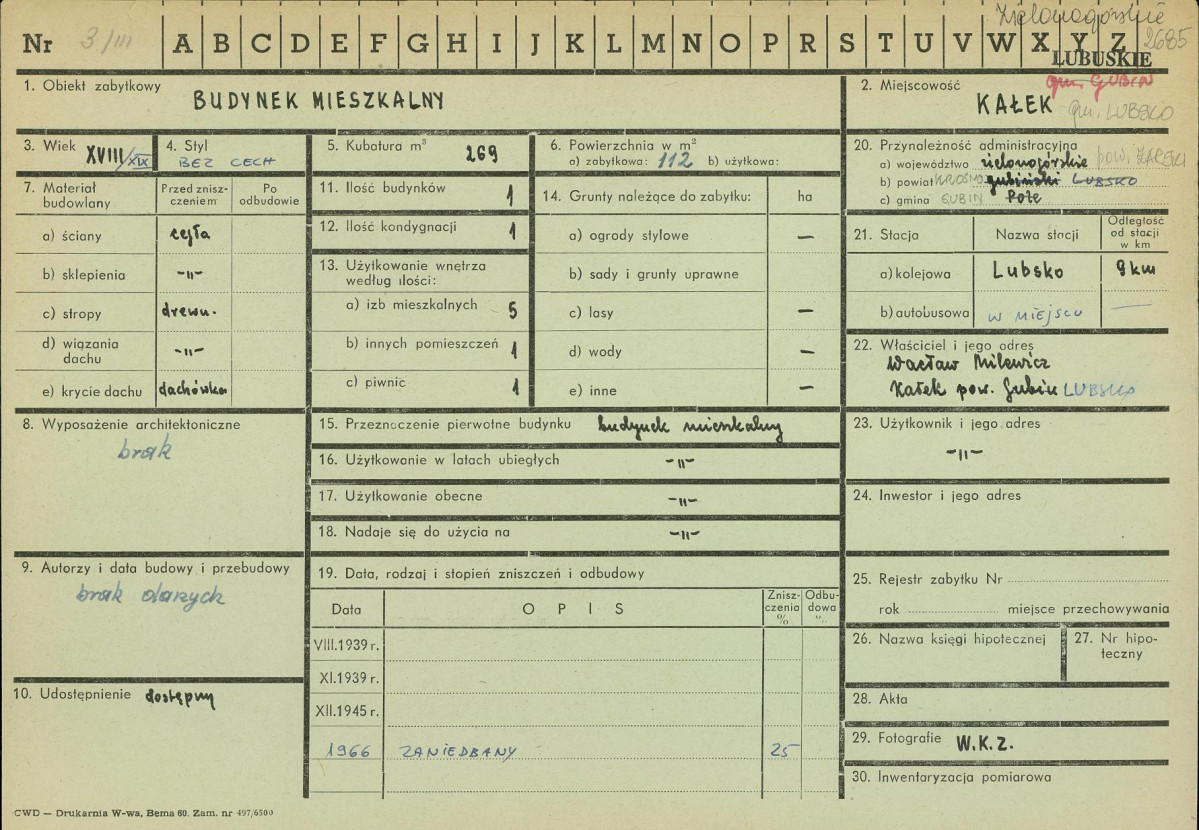 Zielonogórskie
Nr 3/III A B C D E F G H I J K L M N O P R S T U V W X Y Z 2685
LUBUSKIE
1. Obiekt zabytkowy BUDYNEK MIESZKALNY
2. Miejscowość KAŁEK
gm. GUBIN
gm. LUBSKO
3. Wiek XVIII/XIX
4. Styl BEZ CECH
5. Kubatura m³ 269
6. Powierzchnia w m²
a) zabytkowa: 112 b) użytkowa:
7. Materiał budowlany
Przed zniszczeniem
Po odbudowie
a) ściany cegła
b) sklepienia -„-
c) stropy drewn.
d) wiązania dachu -„-
e) krycie dachu dachówka
8. Wyposażenie architektoniczne
brak
9. Autorzy i data budowy i przebudowy
brak danych
10. Udostępnienie dostępny
11. Ilość budynków 1
12. Ilość kondygnacji 1
13. Użytkowanie wnętrza
według ilości:
a) izb mieszkalnych 5
b) innych pomieszczeń 1
c) piwnic 1
14. Grunty należące do zabytku: ha
a) ogrody stylowe —
b) sady i grunty uprawne
c) lasy —
d) wody —
e) inne —
15. Przeznaczenie pierwotne budynku budynek mieszkalny
16. Użytkowanie w latach ubiegłych -„-
17. Użytkowanie obecne -„-
18. Nadaje się do użycia na -„-
19. Data, rodzaj i stopień zniszczeń i odbudowy
Data OPIS Zniszczenia % Odbudowa %
VIII.1939 r.
XI.1939 r.
XII.1945 r.
1966 ZANIEDBANY 25
20. Przynależność administracyjna
a) województwo zielonogórskie pow. ŻARSKI
b) powiat KROSNO gubiński LUBSKO
c) gmina GUBIN Pole
21. Stacja Nazwa stacji Odległość od stacji w km
a) kolejowa Lubsko 9 km
b) autobusowa W MIEJSCU —
22. Właściciel i jego adres
Wacław Milewicz
Kałek pow. Gubin LUBSKO
23. Użytkownik i jego adres
-„-
24. Inwestor i jego adres
25. Rejestr zabytku Nr
rok miejsce przechowywania
26. Nazwa księgi hipotecznej
27. Nr hipoteczny
28. Akta
29. Fotografie W.K.Z.
30. Inwentaryzacja pomiarowa
CWD — Drukarnia W-wa, Bema 60. Zam. nr 497/6500